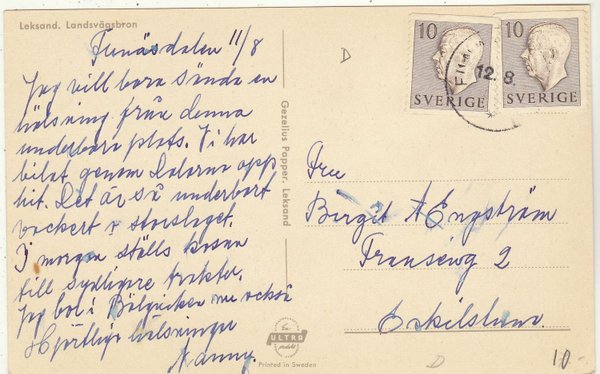 Leksand. Landsvägsbron
Funäsdalen 11/8
Jag vill bara sända en
hälsning från denna
underbara plats. Vi har
bilat genom Dalarna opp
hit. Det är så underbart
vackert o storslaget.
I morgon ställs kosan
till sydligare trakter.
Jag bor i nu också
Hjärtliga hälsningar
Nanny.
Gezelius Papper. Leksand
En
ULTRA
Printed in Sweden
D
10
SVERIGE
10
SVERIGE
12. 8.
Fru
Birgit A Engström
2
Eskilstuna.
D
10-